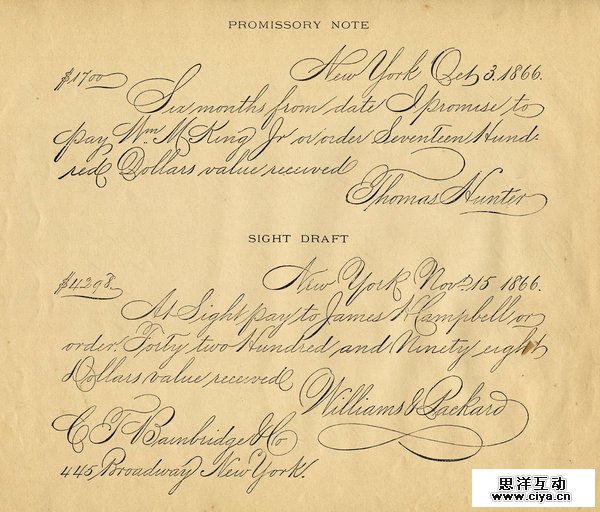 PROMISSORY NOTE
$1700 New York Oct 3. 1866.
Six months from date I promise to
pay Wm. M King Jr or order Seventeen Hund-
red Dollars value received
Thomas Hunter
SIGHT DRAFT
$4298. New York Nov. 15 1866.
At Sight pay to James K Campbell or
order Forty two Hundred and Ninety eight
Dollars value received
Williams & Packard
C T Bainbridge & Co
445 Broadway New York.
思洋互动
www.ciya.cn